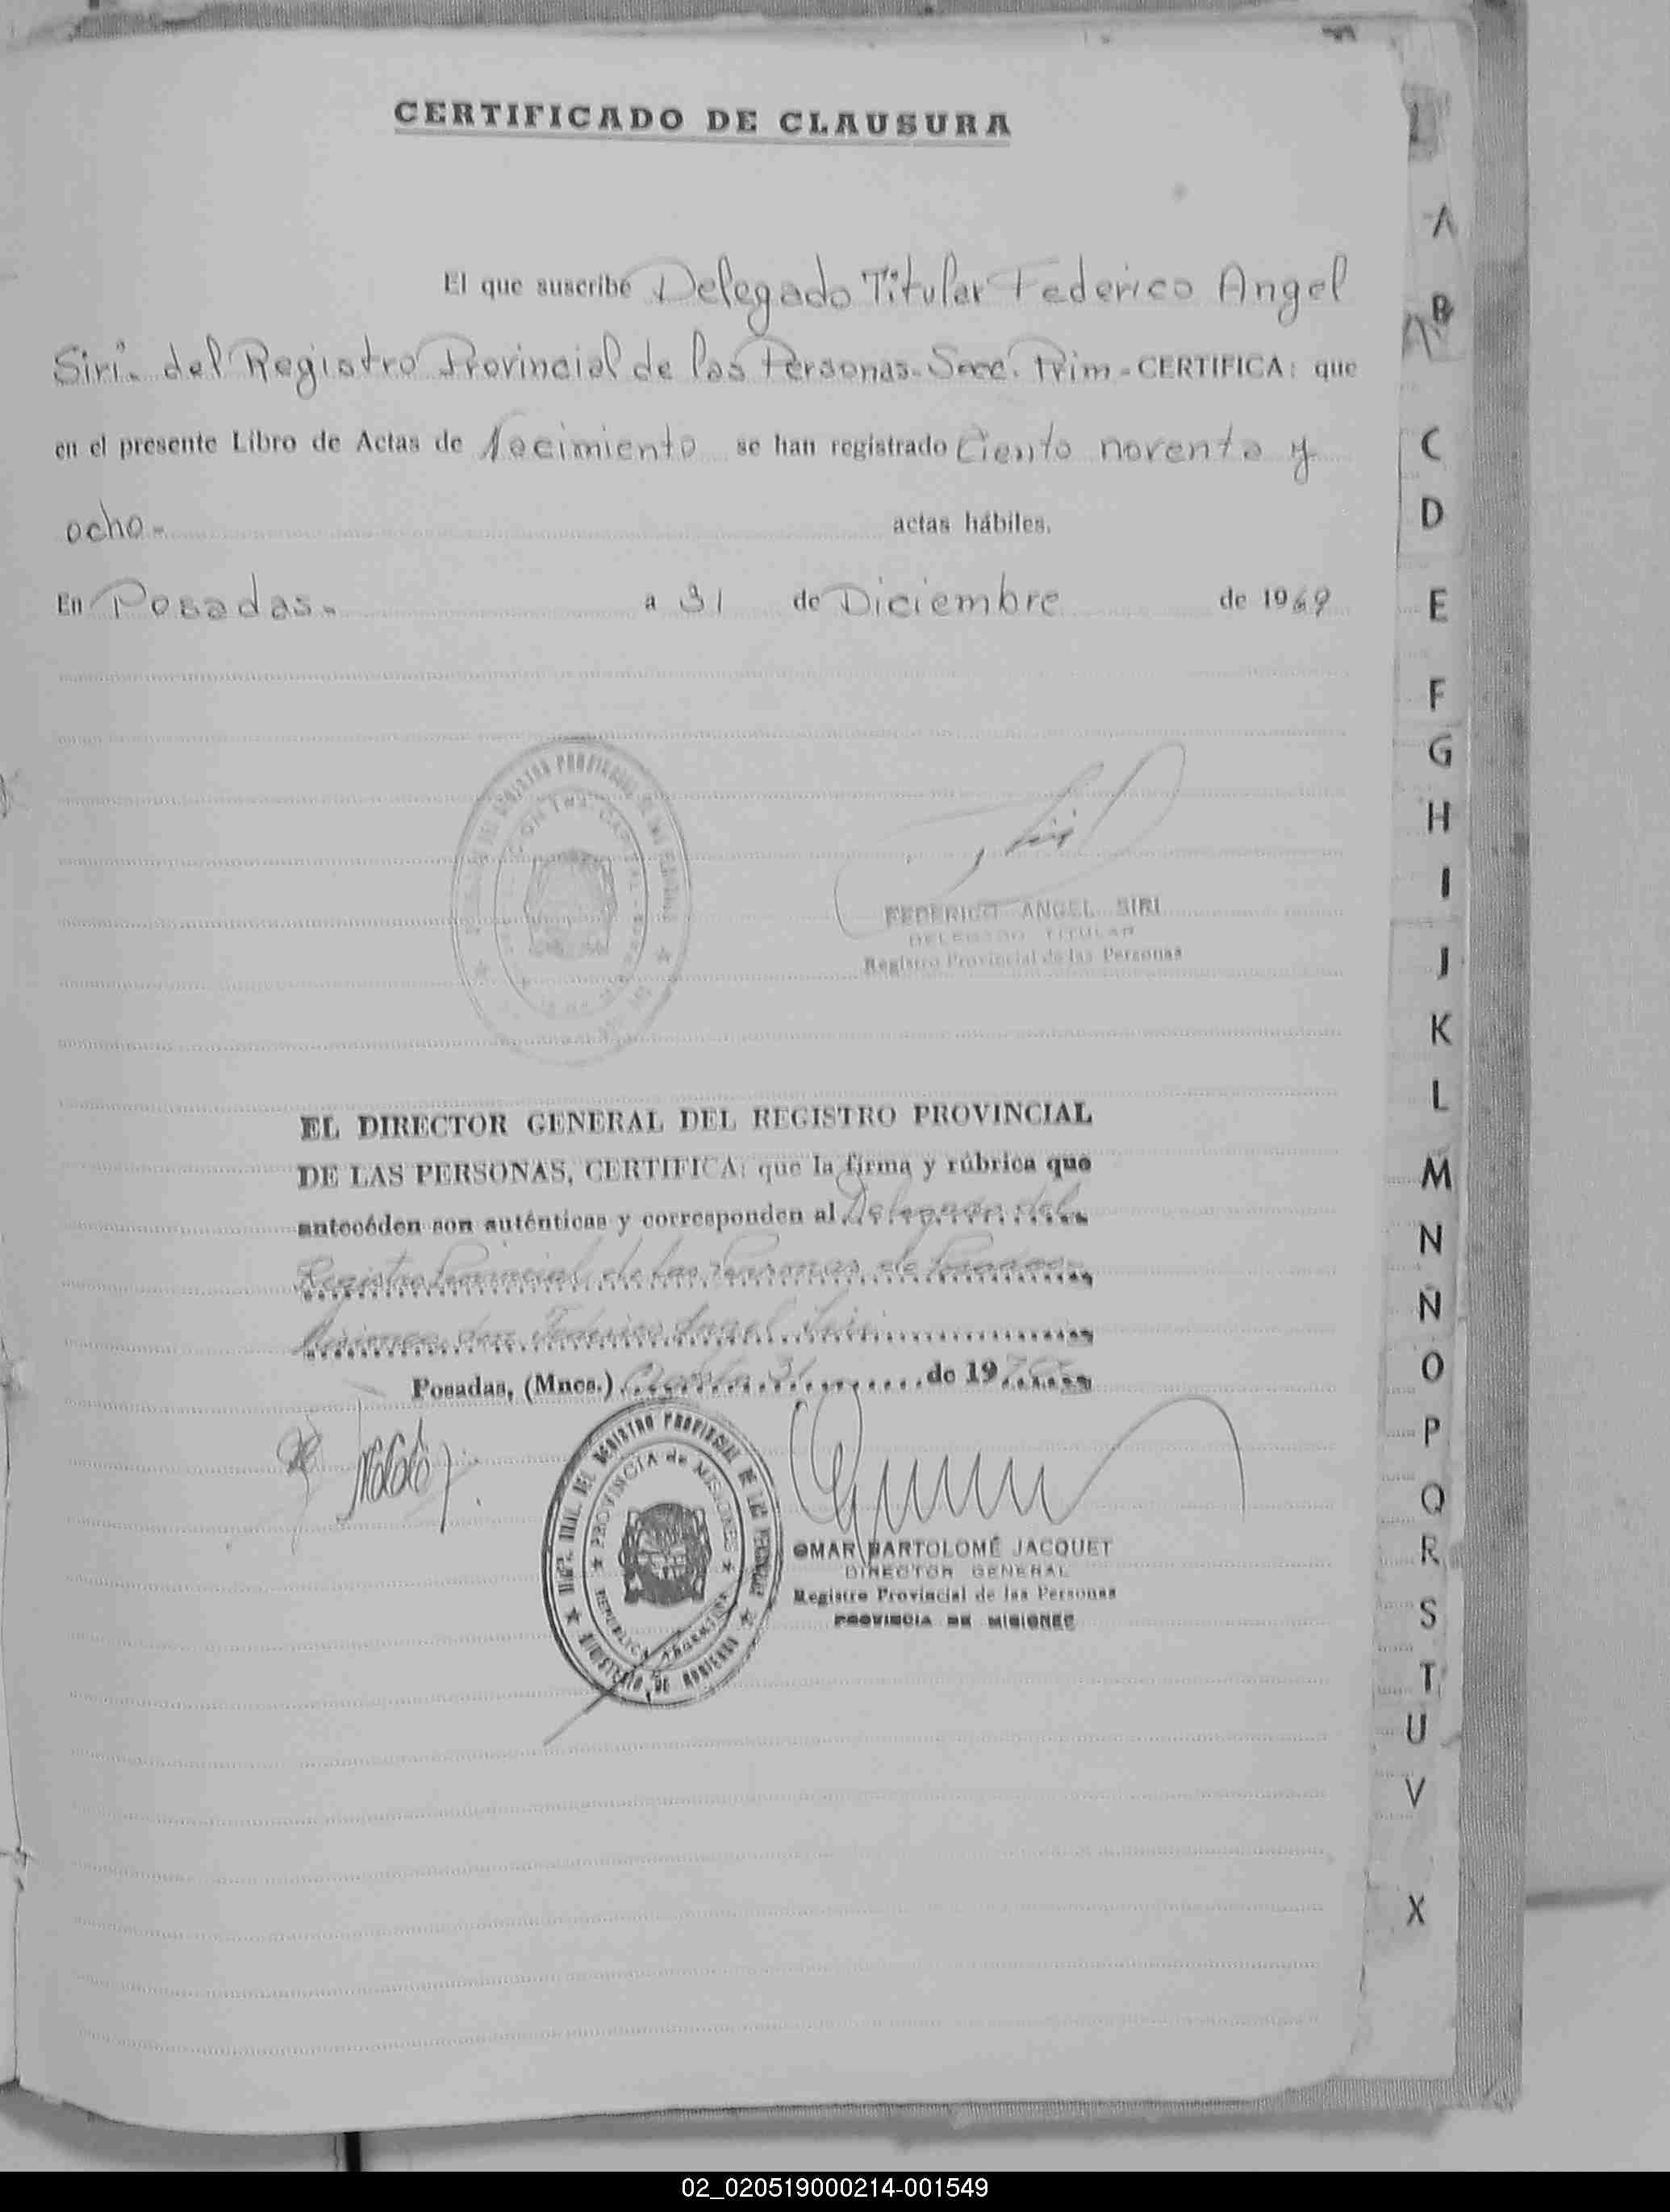 CERTIFICADO DE CLAUSURA
El que suscribe Delegado Titular Federico Angel
Siri. del Registro Provincial de las Personas. Secc. Prim - CERTIFICA: que
en el presente Libro de Actas de Nacimiento se han registrado Ciento noventa y
ocho - actas hábiles.
En Posadas. a 31 de Diciembre de 1969
FEDERICO ANGEL SIRI
DELEGADO TITULAR
Registro Provincial de las Personas
EL DIRECTOR GENERAL DEL REGISTRO PROVINCIAL
DE LAS PERSONAS, CERTIFICA: que la firma y rúbrica que
antecéden son auténticas y corresponden al Delegado del
Registro Provincial de las Personas de Posadas
Misiones, don Federico Angel Siri
Posadas, (Mnes.) Agosto 31 de 19
DIREC. GRAL. DEL REGISTRO PROVINCIAL DE LAS PERSONAS
PROVINCIA de MISIONES
REPUBLICA ARGENTINA
MINISTERIO DE GOBIERNO
OMAR BARTOLOMÉ JACQUET
DIRECTOR GENERAL
Registro Provincial de las Personas
PROVINCIA DE MISIONES
A
B
C
D
E
F
G
H
I
J
K
L
M
N
Ñ
O
P
Q
R
S
T
U
V
X
02_020519000214-001549